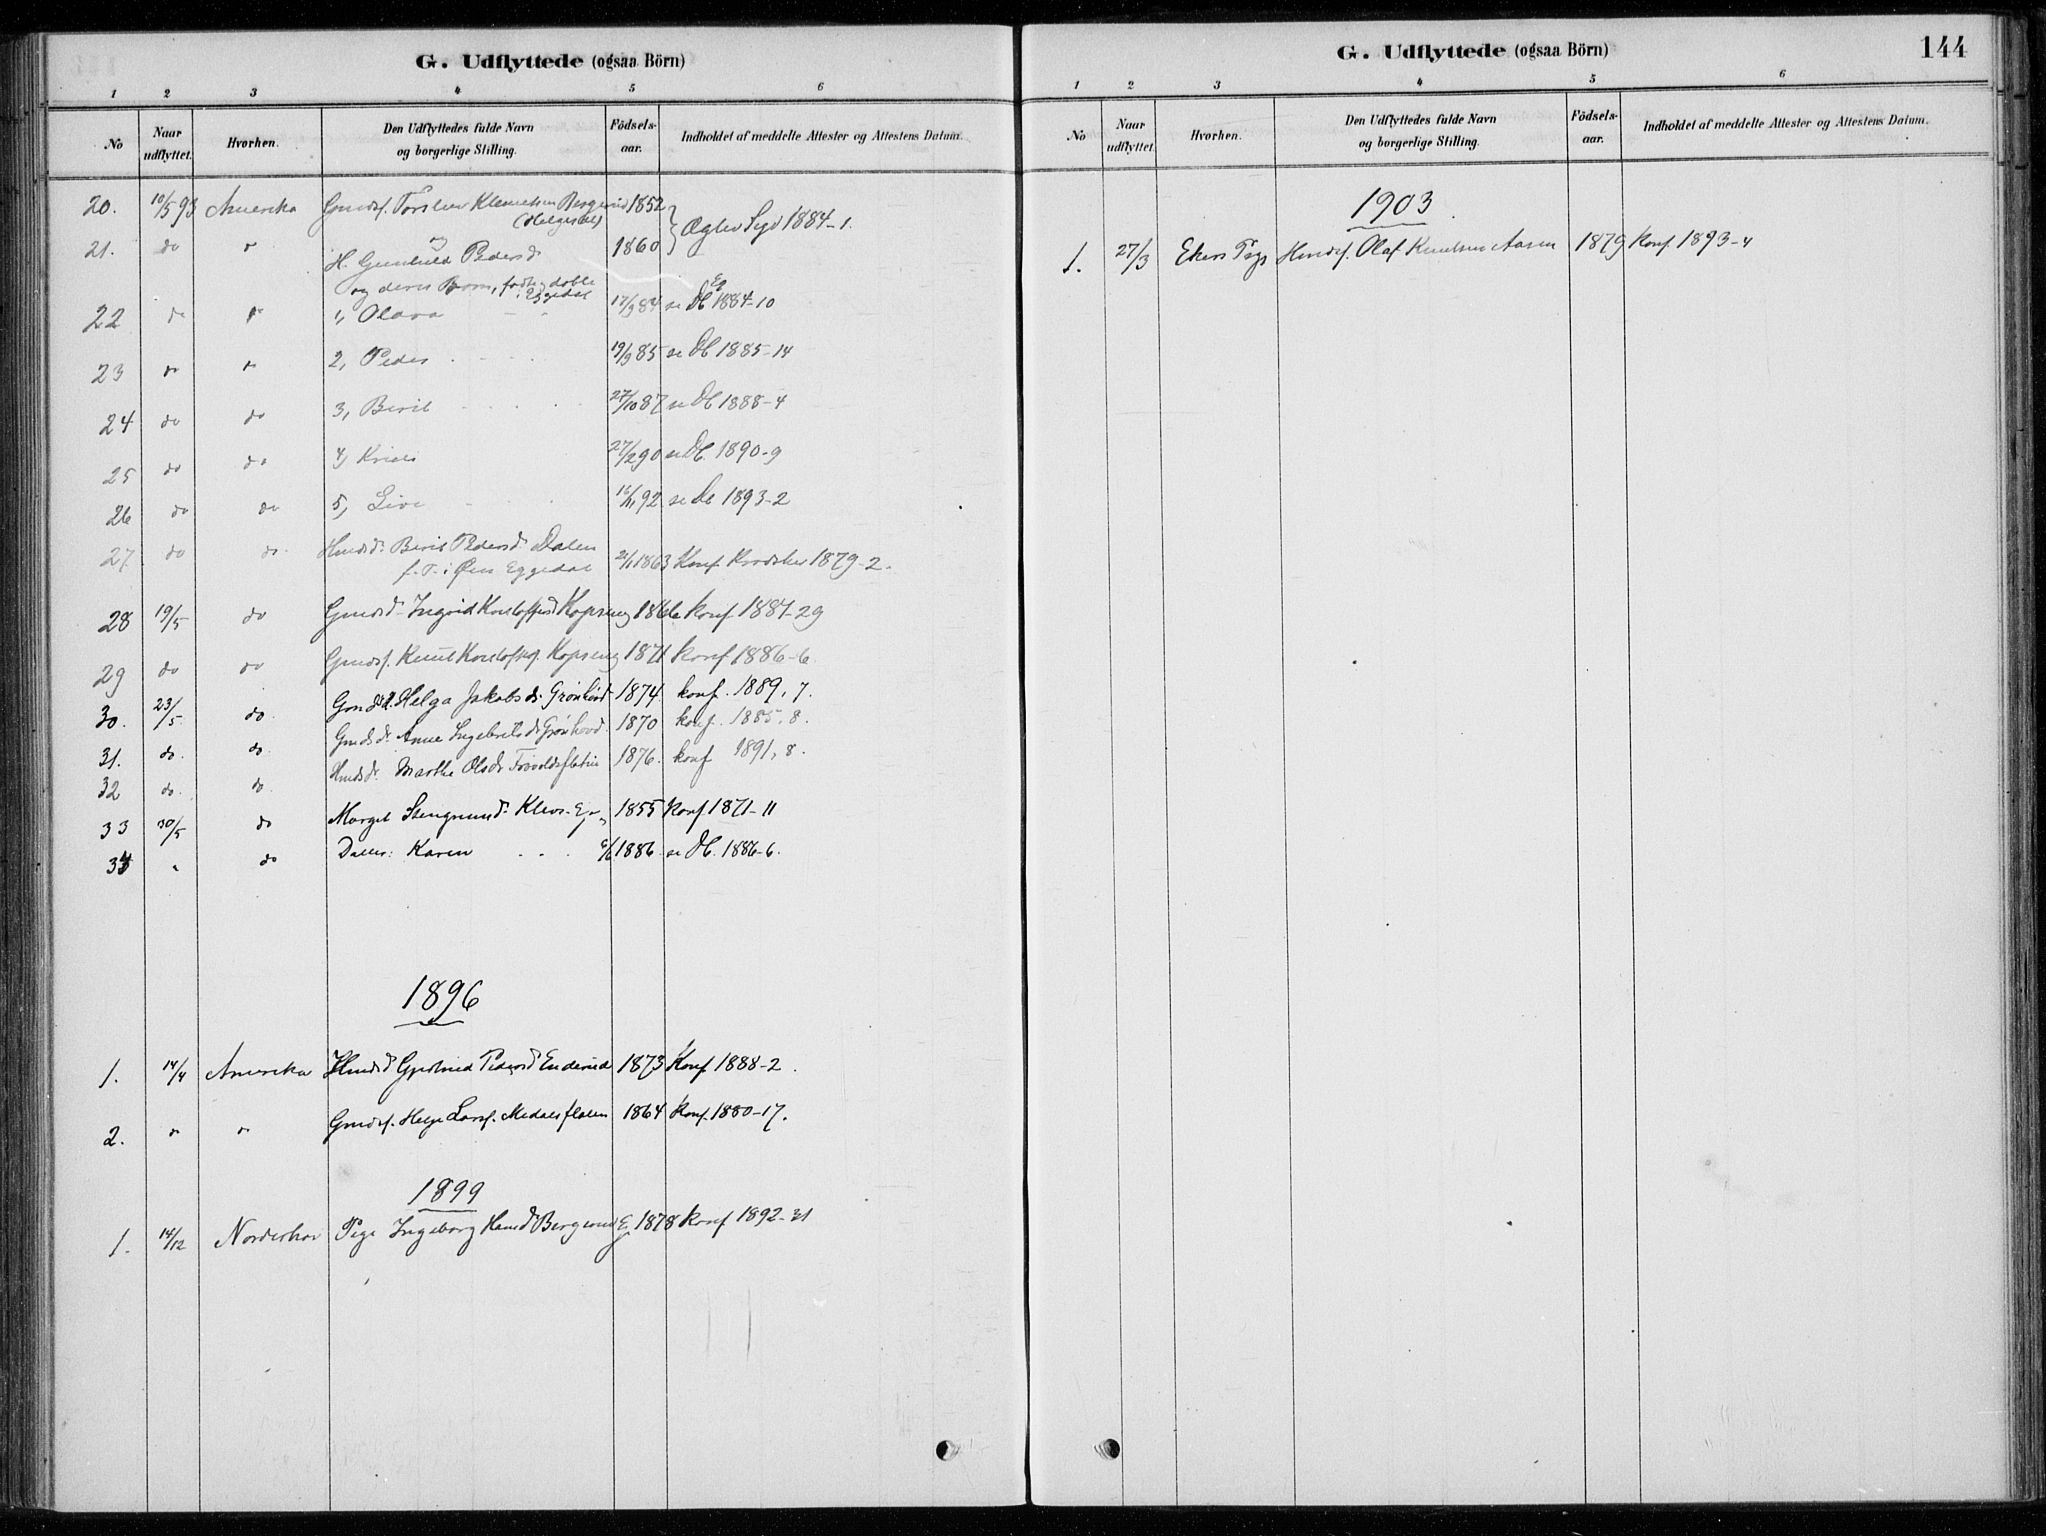 G. Udflyttede (ogsaa Börn)
1 2 3 4 5 6
No Naar udflyttet. Hvorhen. Den Udflyttedes fulde Navn og borgerlige Stilling. Födsels-aar. Indholdet af meddelte Attester og Attestens Datum.
20. 10/5 93 Amerika Gmdsf. Torsten Klemetsen Bergerud 1852
21. do " og H. Gunhild Pedersd. 1860 Ægtev 1884-1.
og deres Børn, født og døbte i Eggedal
22 do " 1, Olava 17/3 84 se Db Eg 1884-10
23 do " 2, Peder 19/9 85 se Db 1885-14
24 do do 3, Berit 27/10 87 se Db 1888-4
25 do do 4, 27/2 90 se Db. 1890-9
26 do do 5, Live 92 se Db 1893-2
27 do do. Hmdsd. Berit Pedersd. Dalen
f. T. i Eggedal 1863 Konf 1879-2.
28 19/5 do Gmdsd. Ingrid Kopseng 1866 konf 1881-29
29 do do Gmdsf. Knut Kopseng 1871 konf 1886-6
30. 23/5 do. Gmdsd. Helga Jakobsd. Grønhovd 1874. konf. 1889, 7.
31. do. do. Gmdsd. Anne Ingebretsd. Grønhovd 1870 konf. 1885, 8.
32 do. do. Hmdsd. Marthe Olsdr 1876. konf 1891, 8.
33 30/5 do Marget Stengrimsd. Kleve. 1855 Konf 1871-11
34 " do Datter: Karen . . . 1886 se Db. 1886-6.
1896
1. 14/4 Amerika Hmdsd Gjertrud Pedersd Enderud 1873 Konf 1888-2.
2. " " Gmdsf. Helge Larsf. Medalsflaten 1864 Konf. 1880-17.
1899
1. 14/12 Norderhov Pige Ingeborg Hansd Bergerud 1878 Konf 1892-31
G. Udflyttede (ogsaa Börn) 144
1 2 3 4 5 6
No Naar udflyttet. Hvorhen. Den Udflyttedes fulde Navn og borgerlige Stilling. Födsels-aar. Indholdet af meddelte Attester og Attestens Datum.
1903
1. 27/3 Ekers Olaf Knutsen Aasen 1879 Konf. 1893-4